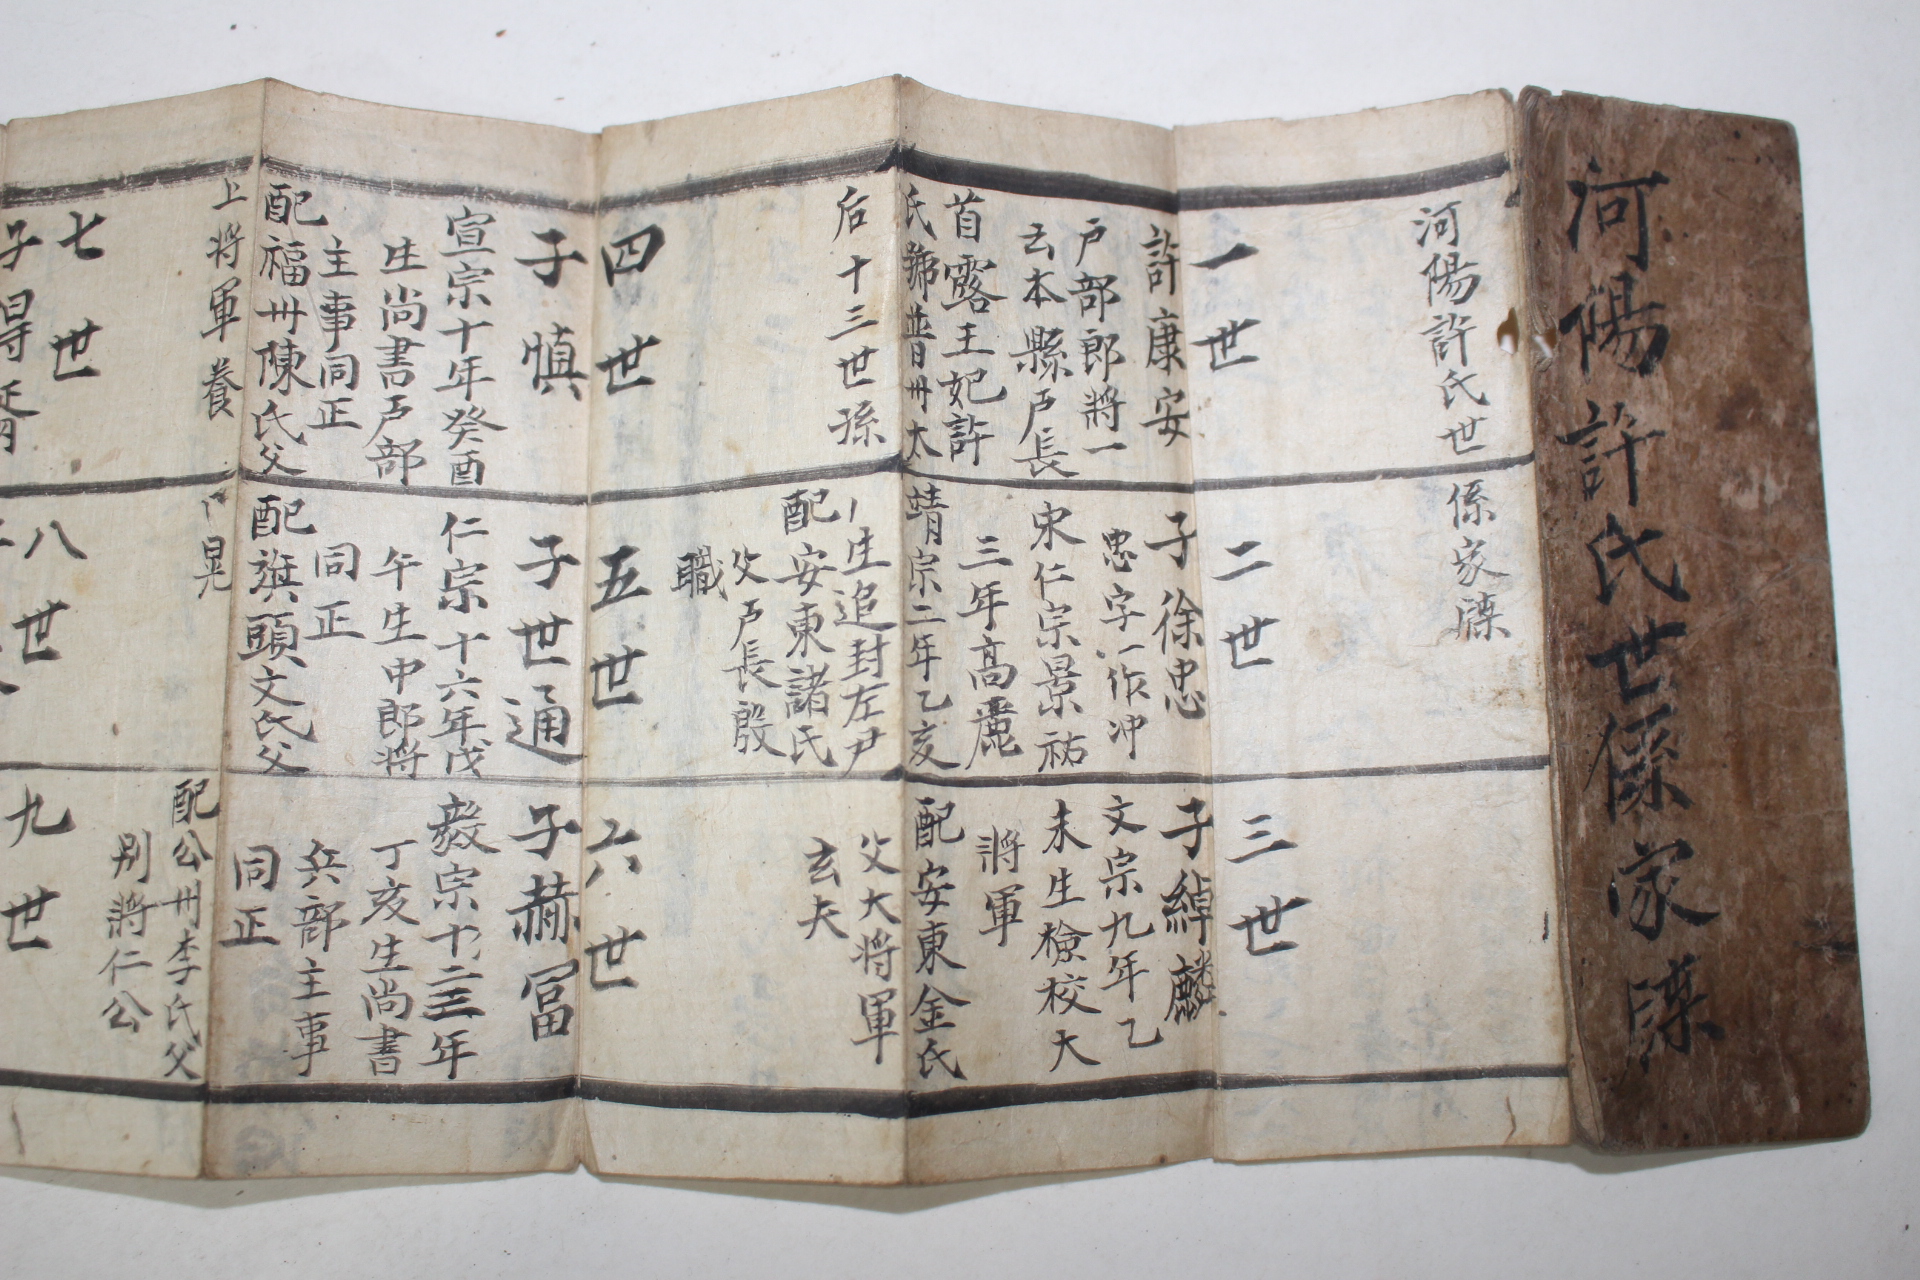 河陽許氏世係家牒
河陽許氏世
係家牒
一世
許康安
戶部郎將一
云本縣戶長
首露王妃許
氏號普州太
后十三世孫
二世
子徐忠
忠字一作冲
宋仁宗景祐
三年高麗
靖宗二年乙亥
生追封左尹
配安東諸氏
父戶長殷
職
三世
子綽麟
文宗九年乙
未生檢校大
將軍
配安東金氏
父大将軍
玄夫
四世
子慎
宣宗十年癸酉
生尚書戸部
主事同正
配福州陳氏父
上将軍養
五世
子世通
仁宗十六年戊
午生中郎將
同正
配旗頭文氏父
晃
六世
子赫冨
毅宗十二三年
丁亥生尚書
兵部主事
同正
配公州李氏父
別將仁公
七世
八世
九世